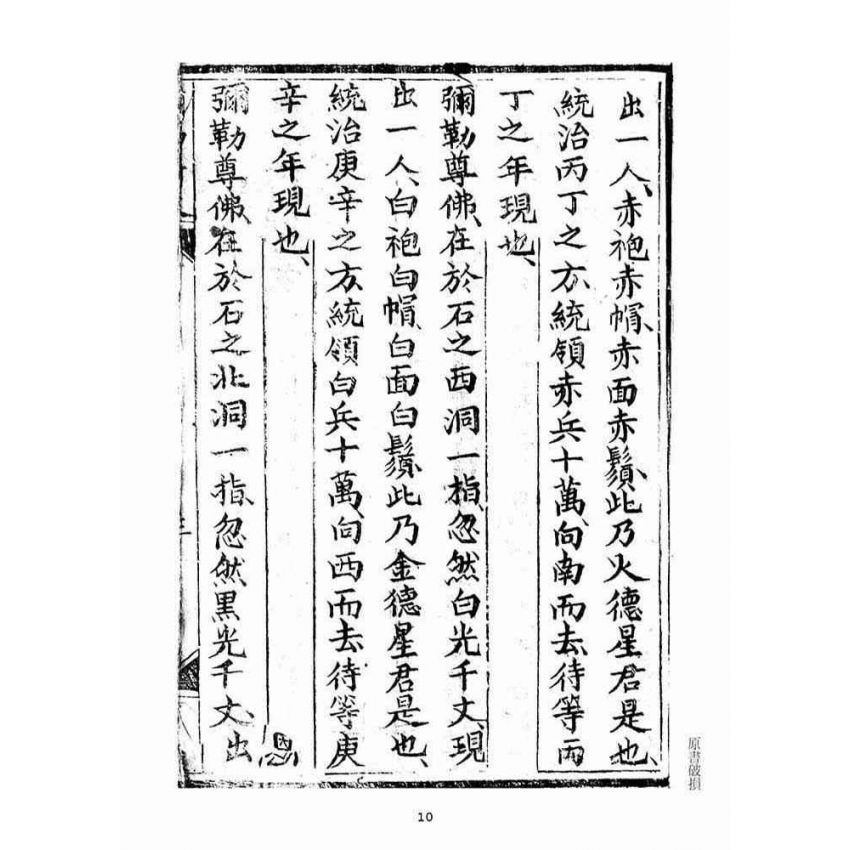 出一人、赤袍赤帽、赤面赤鬚、此乃火德星君是也、
統治丙丁之方、統領赤兵十萬、向南而去、待等丙
丁之年現也、
彌勒尊佛、在於石之西洞一指、忽然白光千丈、現
出一人、白袍白帽、白面白鬚、此乃金德星君是也、
統治庚辛之方、統領白兵十萬、向西而去、待等庚
辛之年現也、
彌勒尊佛、在於石之北洞一指、忽然黑光千丈、出
原書破損
10